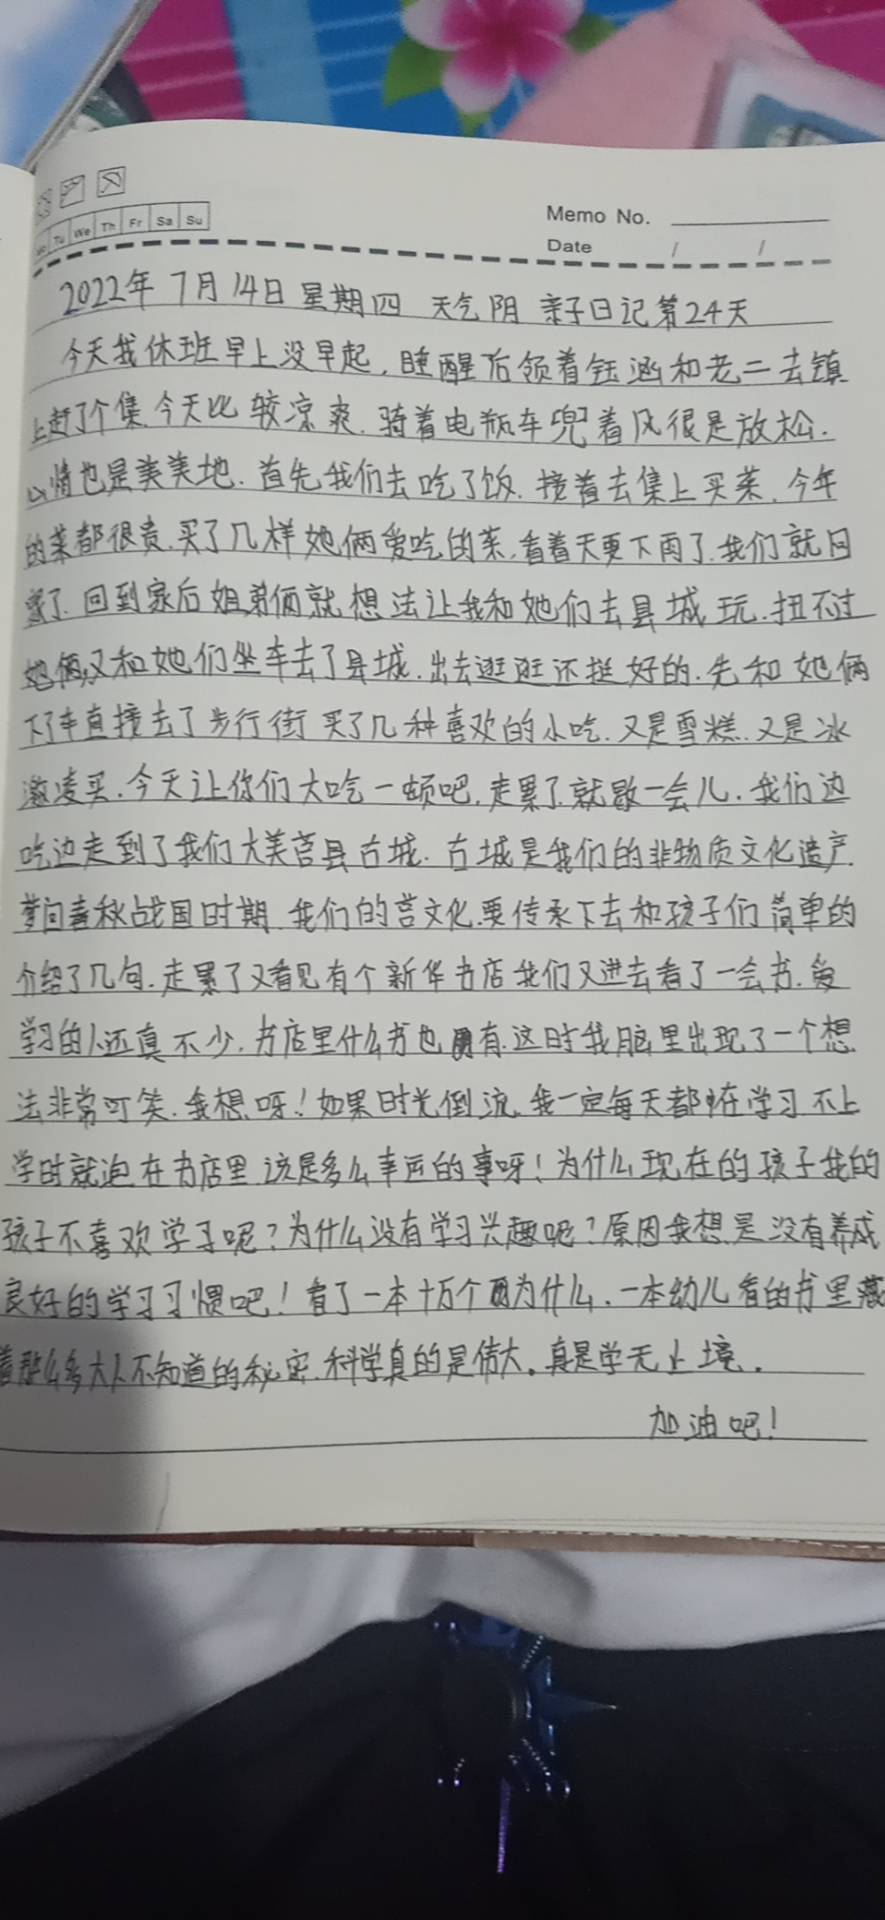 Mo Tu We Th Fr Sa Su
Memo No.
Date / /
2022年 7月14日 星期四 天气阴 亲子日记第24天
今天我休班早上没早起,睡醒后领着钰涵和老二去镇
上赶了个集.今天比较凉爽.骑着电瓶车兜着风很是放松.
心情也是美美地.首先我们去吃了饭.接着去集上买菜.今年
的菜都很贵.买了几样她俩爱吃的菜,看着天要下雨了.我们就回
家了.回到家后姐弟俩就想法让我和她们去县城玩.扭不过
她俩,又和她们坐车去了县城.出去逛逛还挺好的.先和她俩
下了车直接去了步行街买了几种喜欢的小吃.又是雪糕.又是冰
激凌买.今天让你们大吃一顿吧.走累了就歇一会儿.我们边
吃边走到了我们大美莒县古城.古城是我们的非物质文化遗产
梦回春秋战国时期.我们的莒文化.要传承下去和孩子们简单的
介绍了几句.走累了又看见有个新华书店我们又进去看了一会书.爱
学习的人还真不少.书店里什么书也有.这时我脑里出现了一个想
法非常可笑.我想呀!如果时光倒流.我一定每天都在学习不上
学时就泡在书店里.这是多么幸运的事呀!为什么现在的孩子我的
孩子不喜欢学习呢?为什么没有学习兴趣呢?原因我想是没有养成
良好的学习习惯吧!看了一本十万个为什么.一本幼儿看的书里藏
着那么多大人不知道的秘密.科学真的是伟大。真是学无止境.
加油吧!